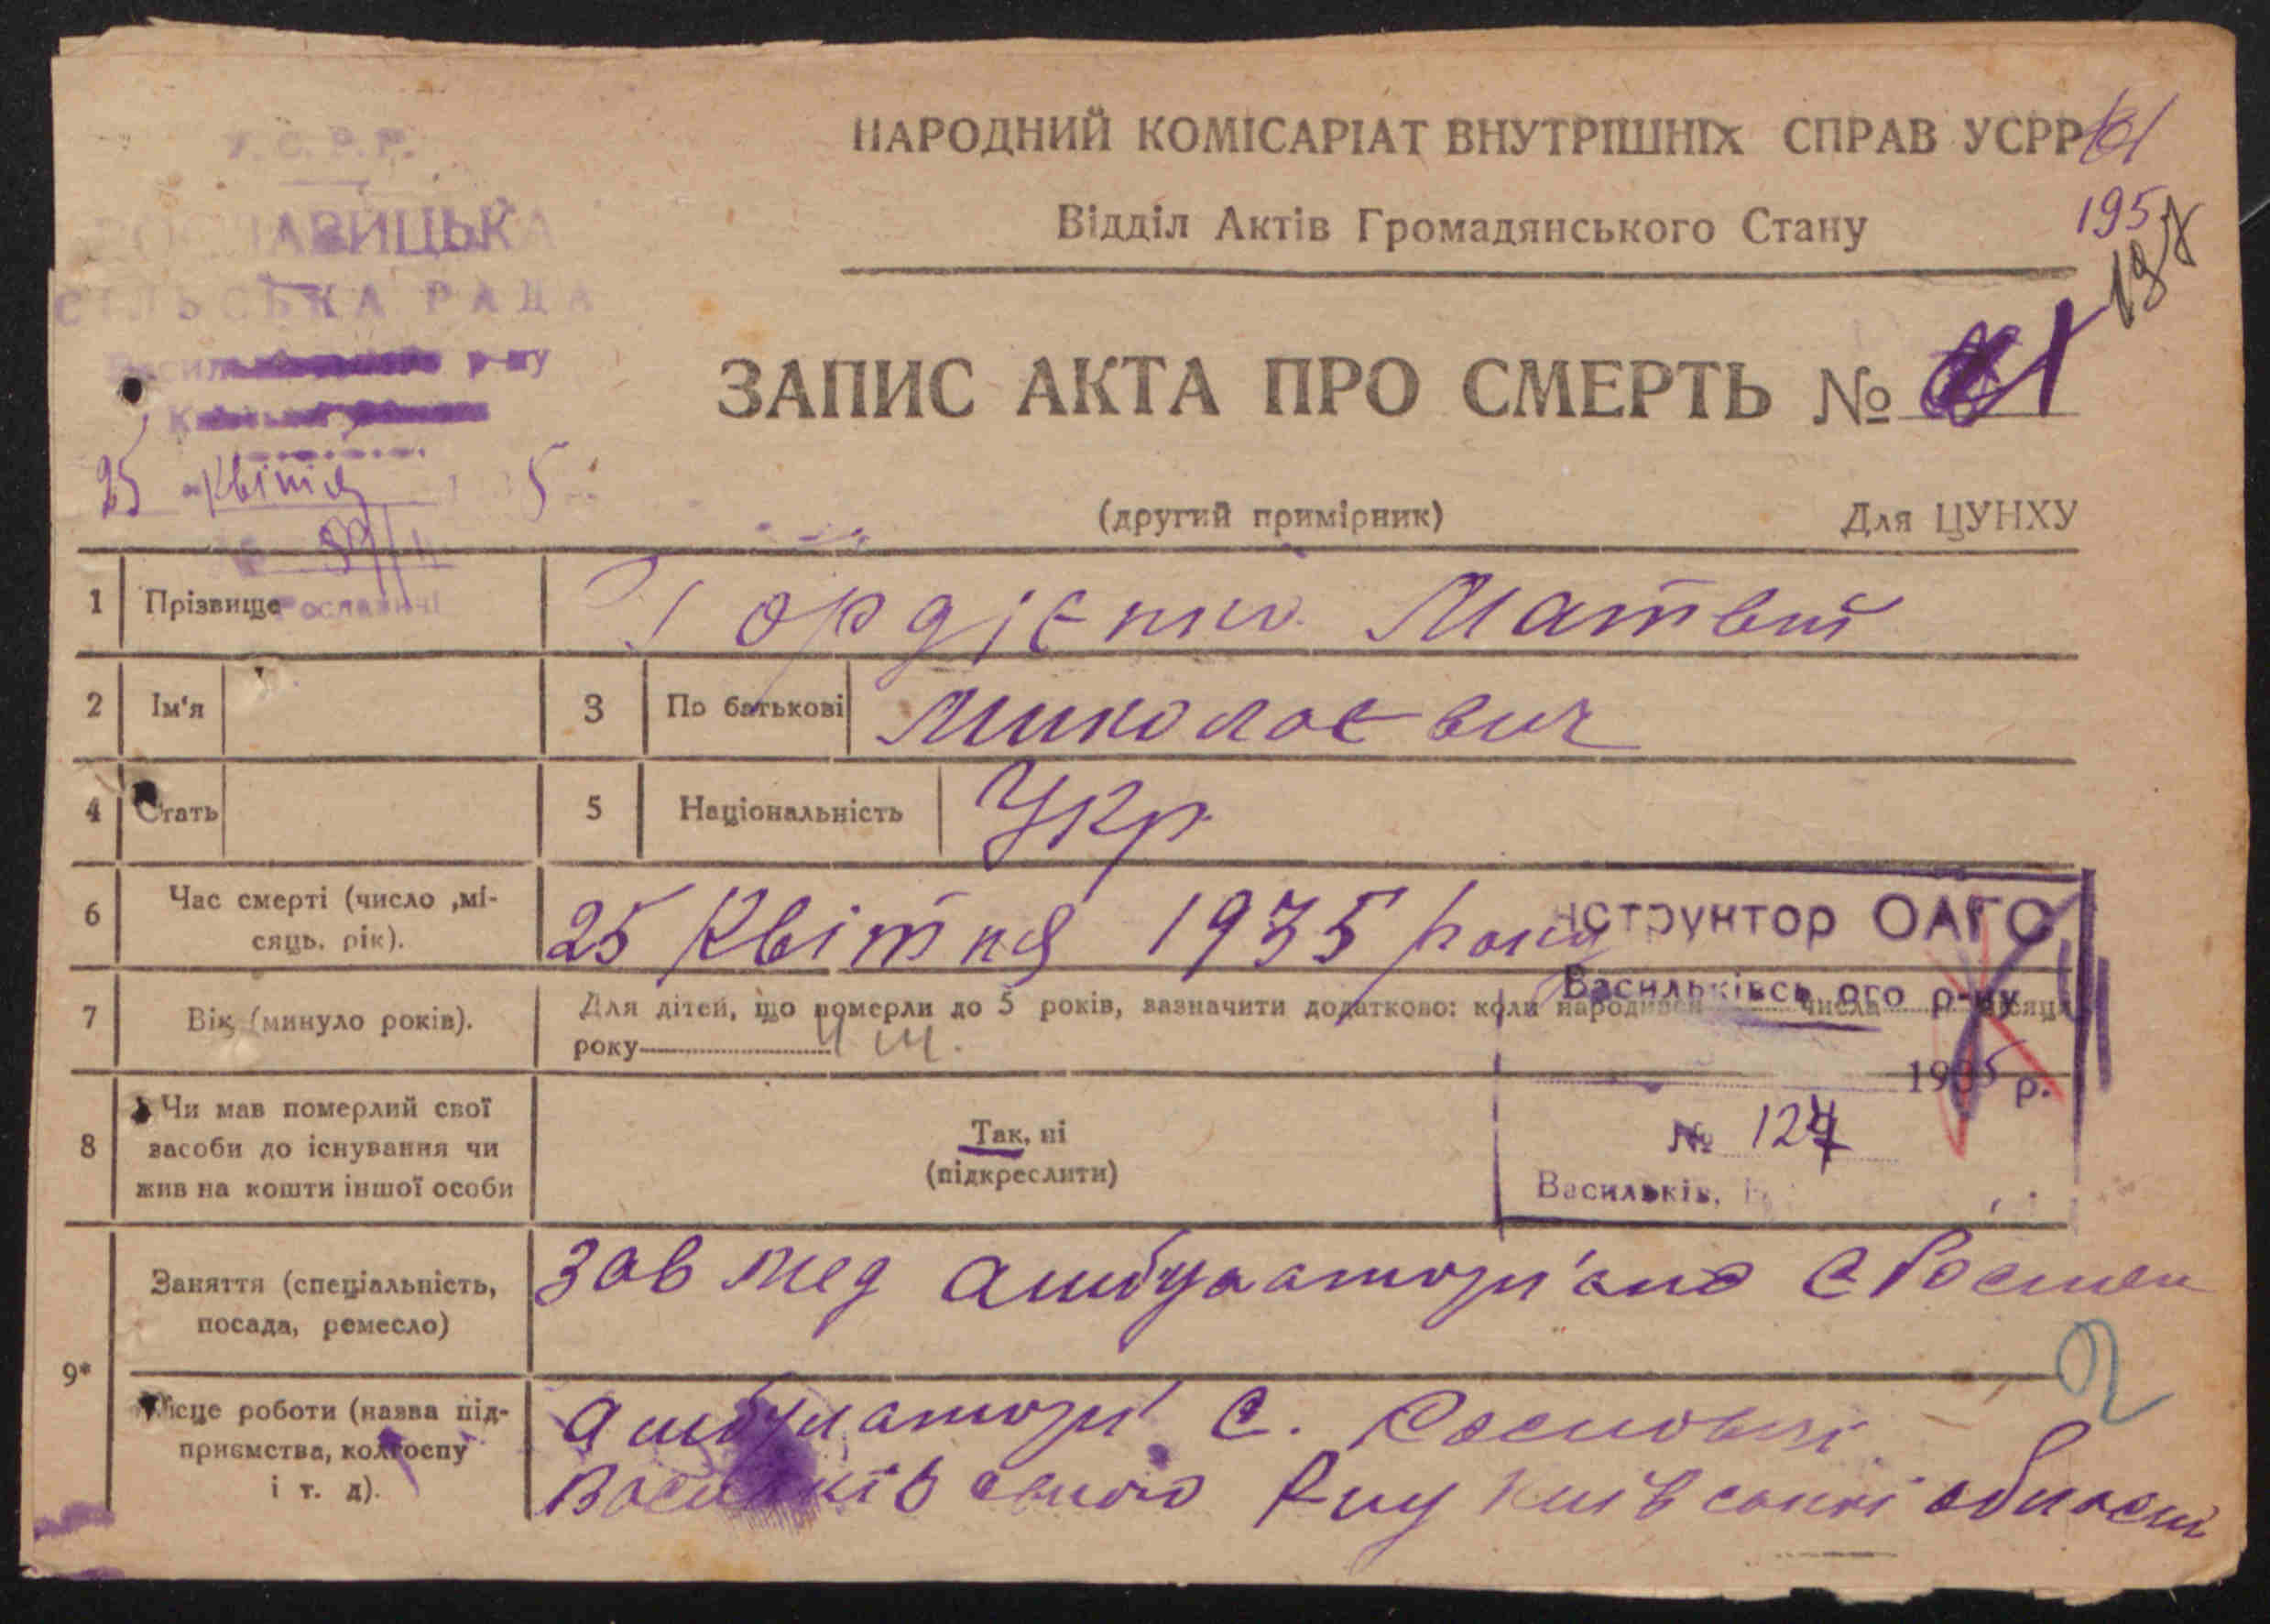 У.С.Р.Р.
РОСЛАВИЦЬКА
СІЛЬСЬКА РАДА
р-ну
25 квітня 5
Рославичі
НАРОДНИЙ КОМІСАРІАТ ВНУТРІШНІХ СПРАВ УСРР
Відділ Актів Громадянського Стану
195
ЗАПИС АКТА ПРО СМЕРТЬ №
(другий примірник) Для ЦУНХУ
1 Прізвище Гордієнко Матвий
2 Ім'я 3 По батькові Миколаєвич
4 Стать 5 Національність Укр
6 Час смерті (число ,мі-
сяць, рік). 25 Квітня 1935 року
7 Вік (минуло років). Для дітей, що померли до 5 років, зазначити додатково: коли народився числа місяця
року
8 Чи мав померлий свої
засоби до існування чи
жив на кошти іншої особи
Так, ні
(підкреслити)
нструктор ОАГС
Васильківсь ого р-ну
1935 р.
№ 127
Васильків,
9*
Заняття (спеціальність,
посада, ремесло) Зав мед
Місце роботи (назва під-
приємства, колгоспу
і т. д).
амбулаторії С.
Васильківського Р-ну Київської області